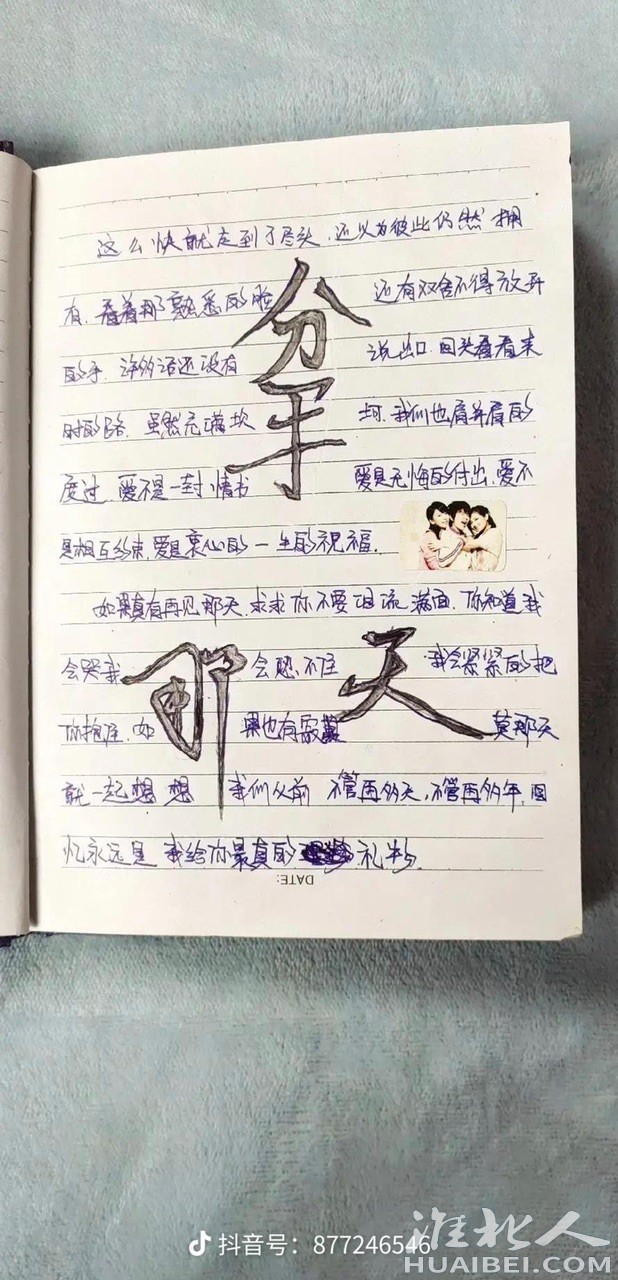 这么快就走到了尽头.还以为彼此仍然拥
有.看着那熟悉的脸 还有双舍不得放弃
的手.许多话还没有 说出口.回头看看来
时的路.虽然充满坎 坷.我们也肩并肩的
度过.爱不是一封情书 爱是无悔的付出.爱不
是相互约束.爱是衷心的一生的祝福.
分手
如果真有再见那天.求求你不要泪流满面.你知道我
会哭我 会忍不住 我会紧紧的把
你抱住.如 果也有寂寞 莫那天
就一起想想 我们从前 不管再多天.不管再多年.回
忆永远是我给你最真的礼物.
那天
DATE:
抖音号：877246546
淮北人
HUAIBEI.COM